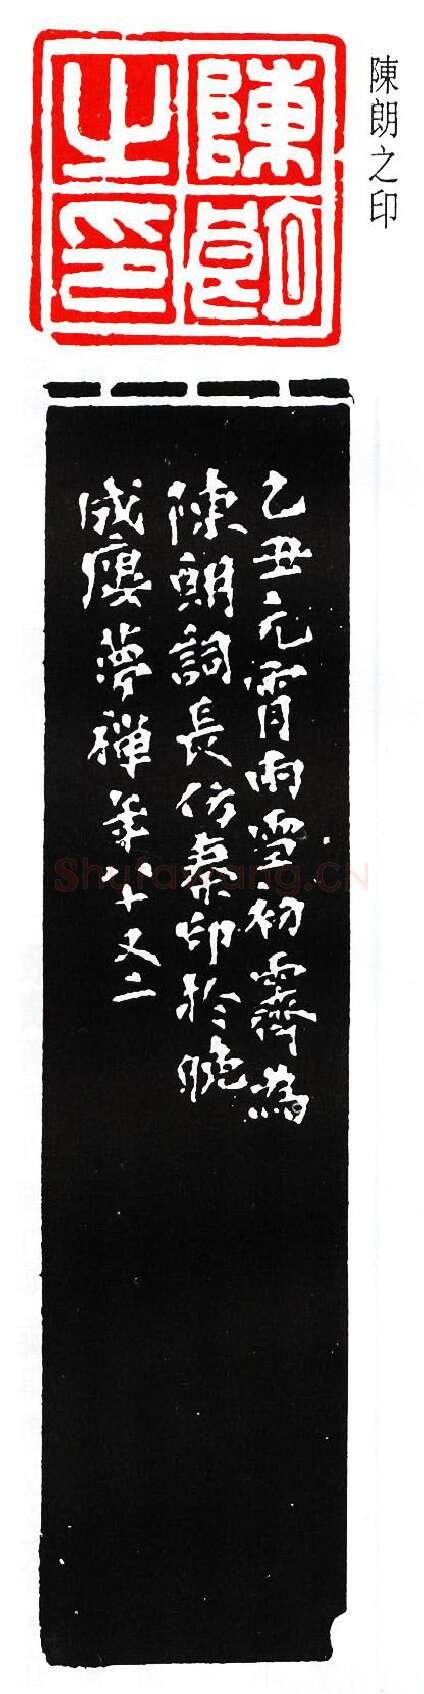 陳朗之印
陳朗之印
乙丑元宵雨雪初霽為
陳朗詞長仿秦印於晚
成廔夢禪年八十又二
Shufawang.CN